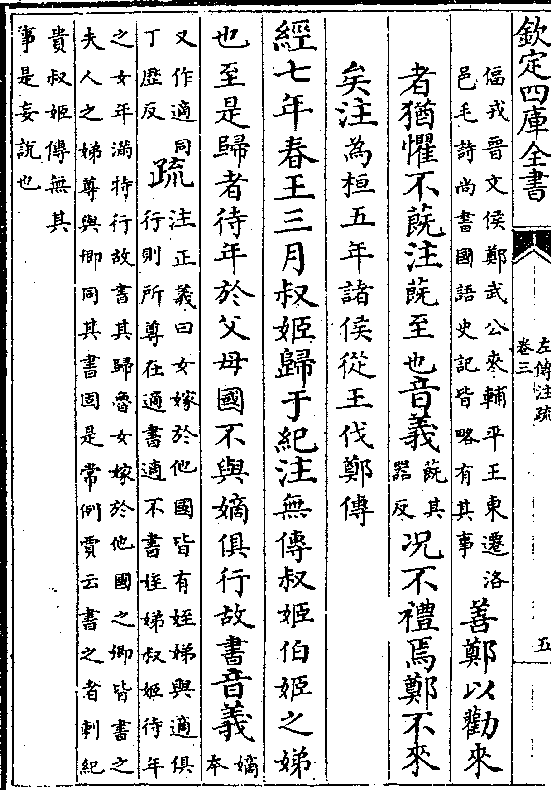 欽定四庫全書
左傳注疏
卷三
五
偪戎晉文侯鄭武公夾輔平王東遷洛
邑毛詩尚書國語史記皆略有其事
善鄭以勸來
者猶懼不蔇注蔇至也音義
蔇其
器反
况不禮焉鄭不來
矣注為桓五年諸侯從王伐鄭傳
經七年春王三月叔姬歸于紀注無傳叔姬伯姬之娣
也至是歸者待年於父母國不與嫡俱行故書音義
嫡
本
又作適同
丁歷反
疏
注正義曰女嫁於他國皆有姪娣與適俱
行則所尊在適書適不書姪娣叔姬待年
之女年滿特行故書其歸魯女嫁於他國之卿皆書之
夫人之娣尊與卿同其書固是常例賈云書之者刺紀
貴叔姬傳無其
事是妄說也